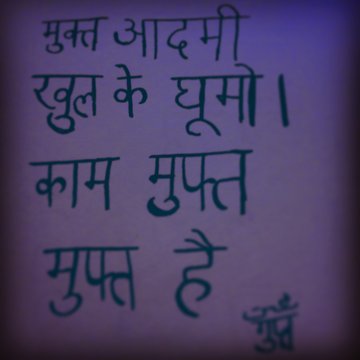 मुक्त आदमी
खुल के घूमो।
काम मुफ्त
मुफ्त है